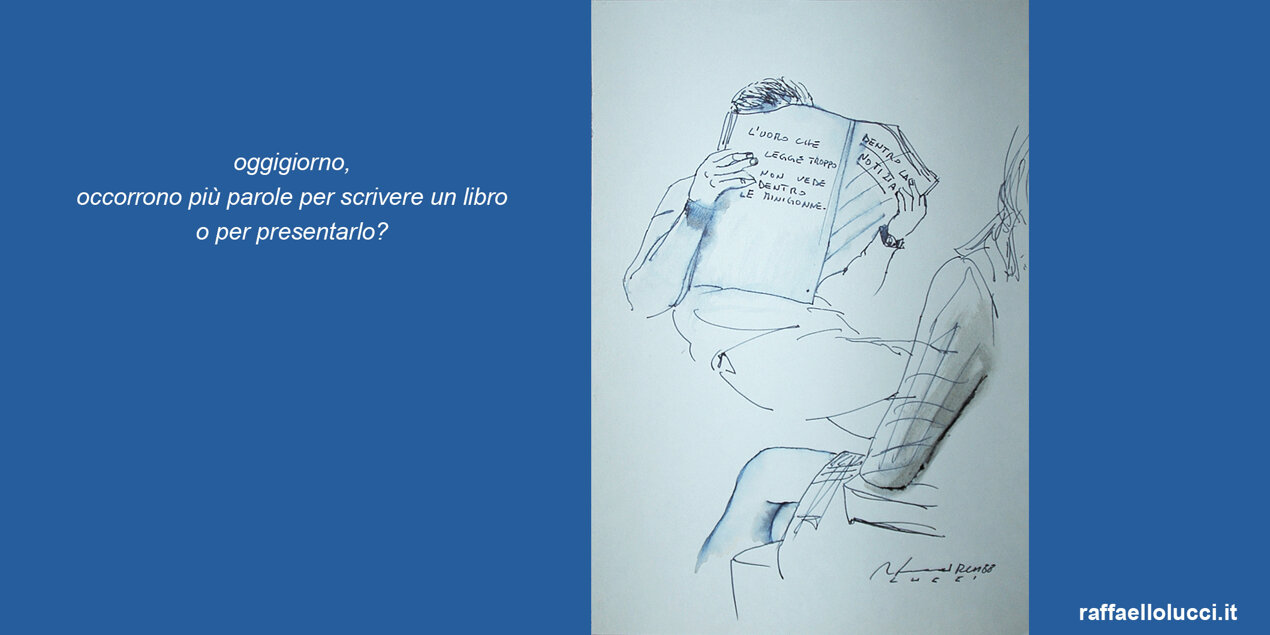 oggigiorno,
occorrono più parole per scrivere un libro
o per presentarlo?
L'UOMO CHE
LEGGE TROPPO
NON VEDE
DENTRO
LE MINIGONNE.
DENTRO LA
NOTIZIA
LUCCI
raffaellolucci.it